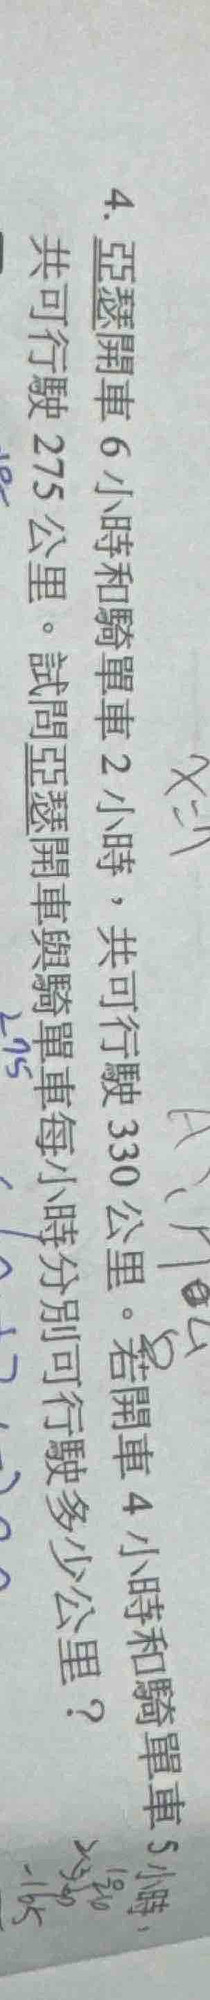 4. 亞瑟開車 6 小時和騎單車 2 小時，共可行駛 330 公里。若開車 4 小時和騎單車 5 小時，
共可行駛 275 公里。試問亞瑟開車與騎單車每小時分別可行駛多少公里？
275
-165